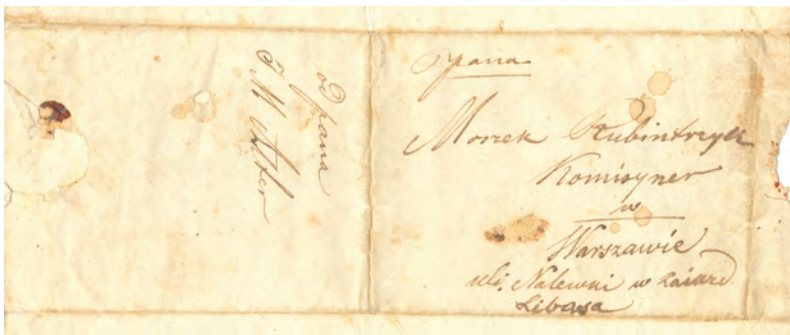 od pana
M Adler
pana
Morzek Rubintrzyk
Komisyner
w
Warszawie
uli. Nalewki w zaiazd
Libasa